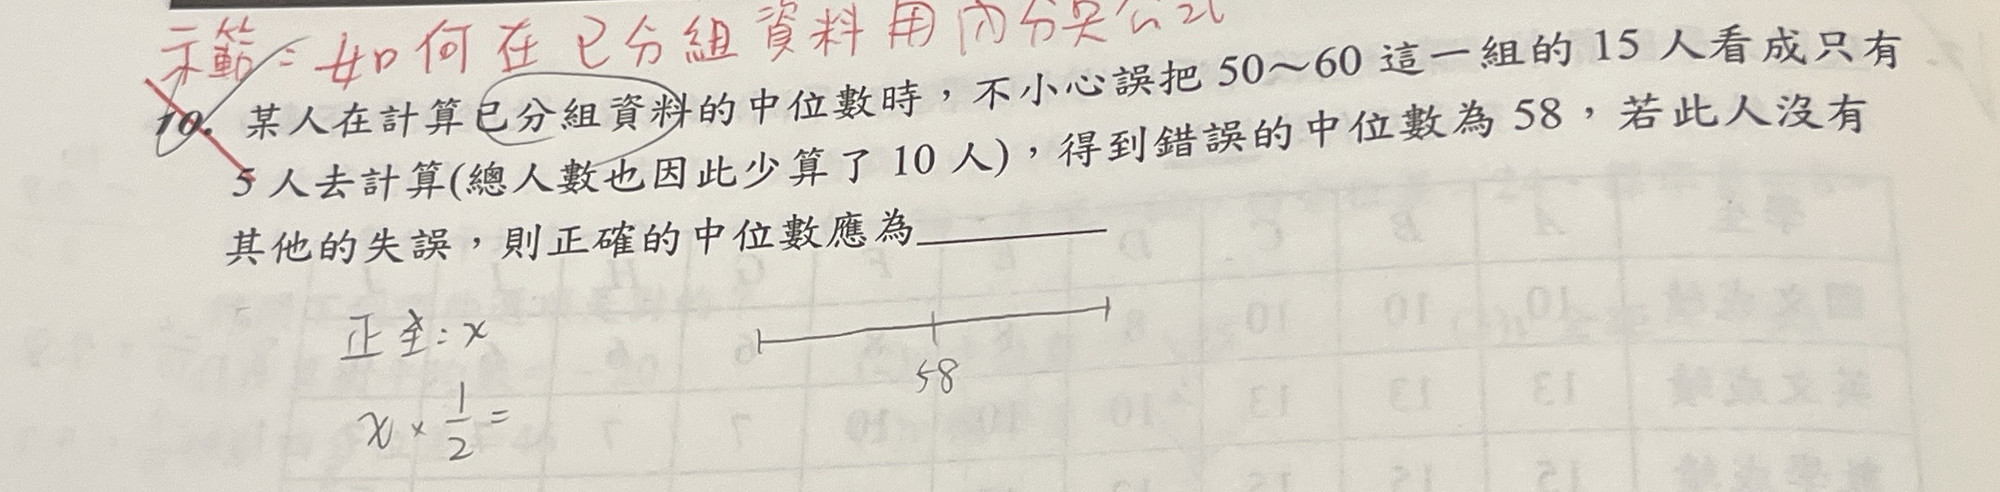 示範：如何在已分組資料用內分公式
10. 某人在計算已分組資料的中位數時，不小心誤把 50～60 這一組的 15 人看成只有
5 人去計算(總人數也因此少算了 10 人)，得到錯誤的中位數為 58，若此人沒有
其他的失誤，則正確的中位數應為
正全：x
58
x × 1/2 =